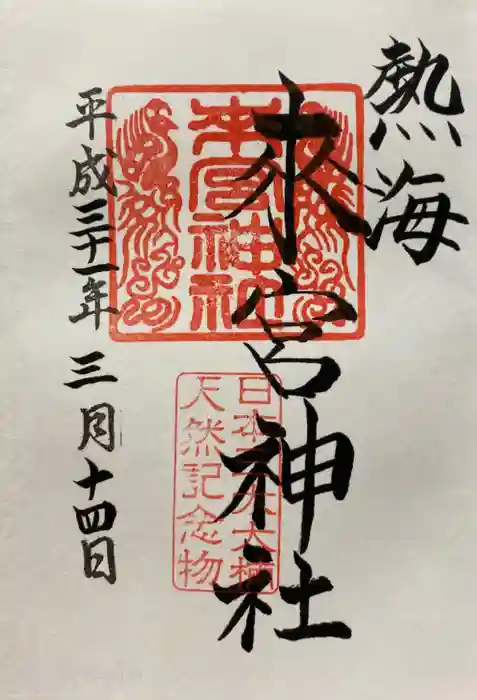 熱海
來宮神社
平成三十一年三月十四日
來宮神社
日本三大大楠
天然記念物